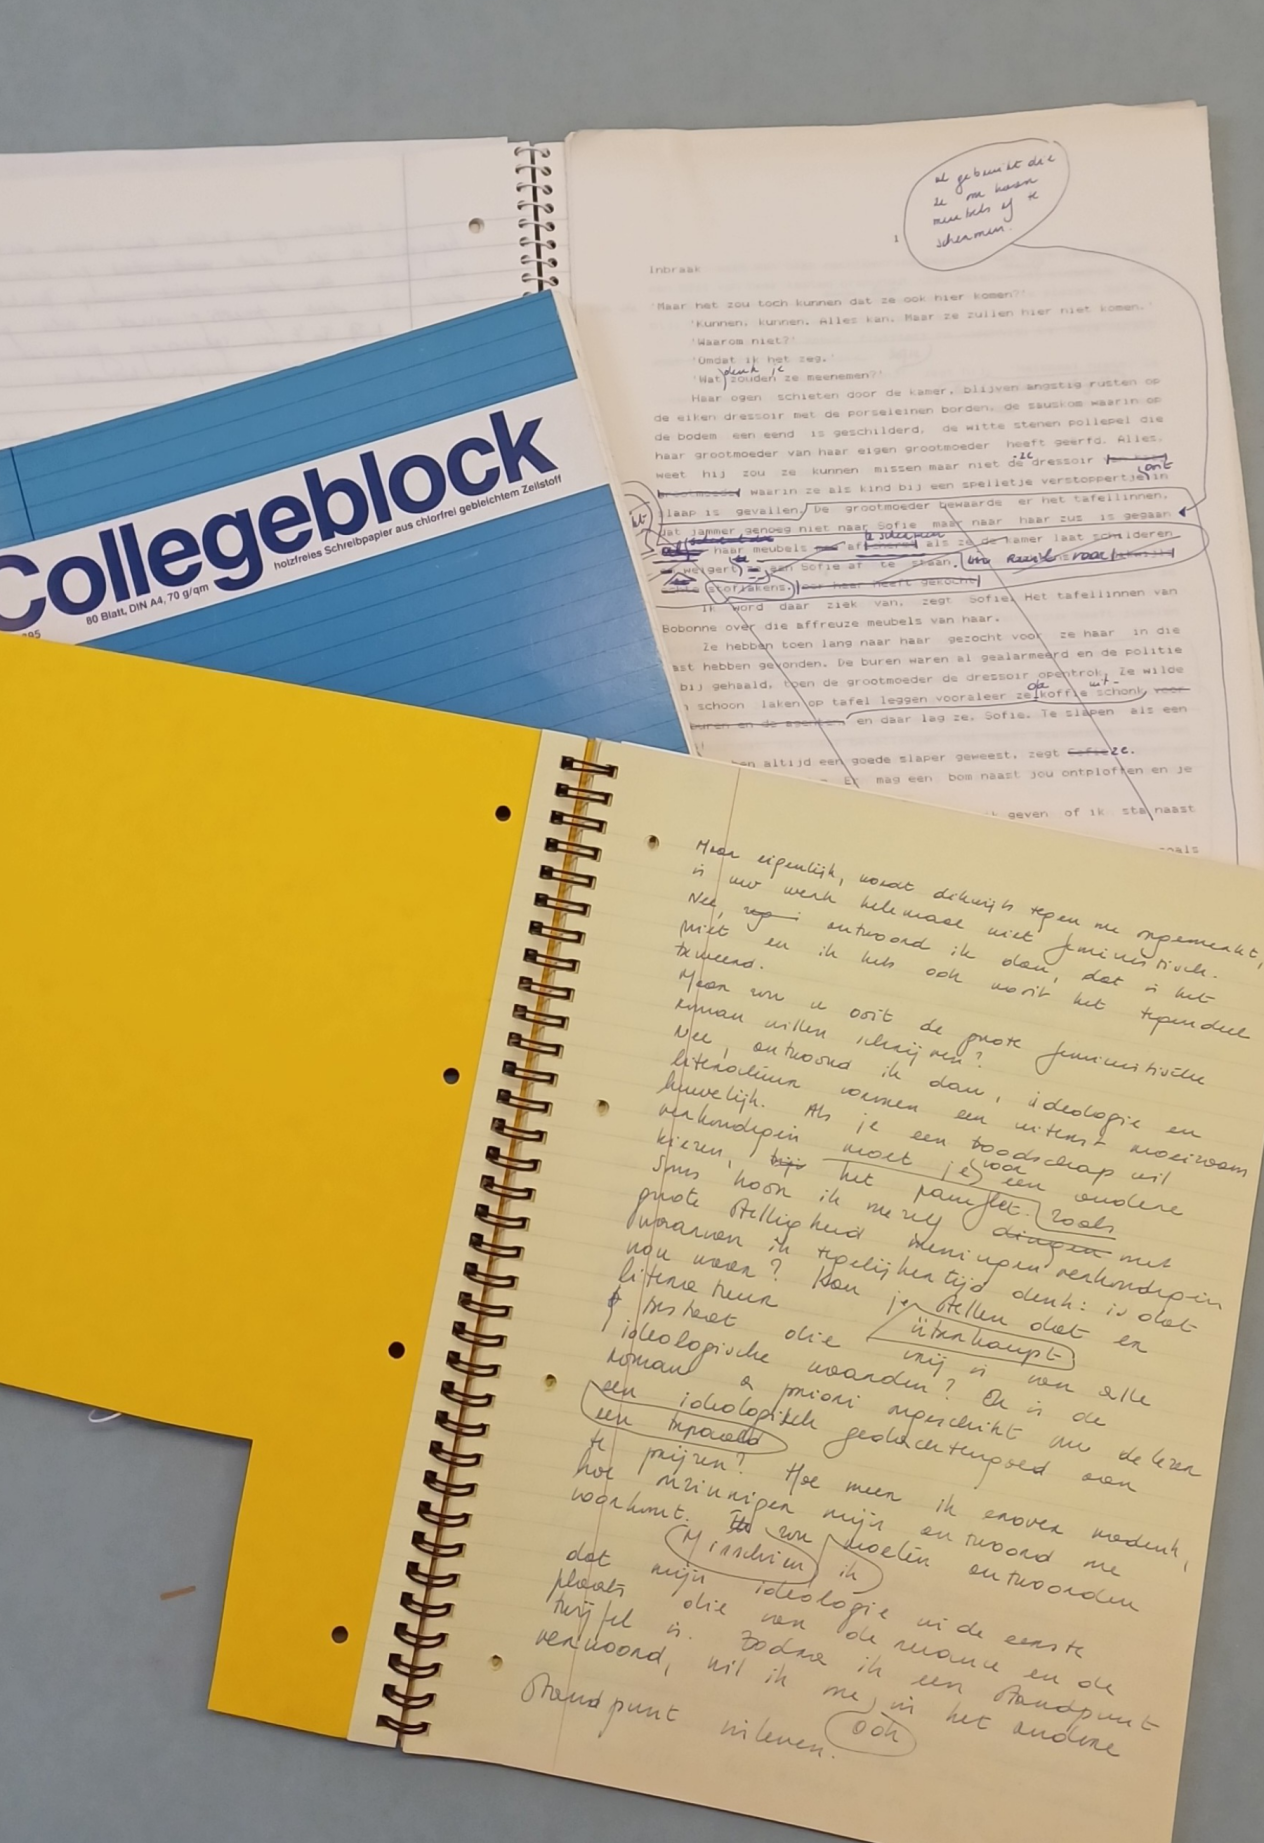 Collegeblock
holzfreies Schreibpapier aus chlorfrei gebleichtem Zellstoff
80 Blatt, DIN A4, 70 g/qm
1
ze om haren
meubels af te
schermen.
Inbraak
'Maar het zou toch kunnen dat ze ook hier komen?'
'Kunnen, kunnen. Alles kan. Maar ze zullen hier niet komen.'
'Waarom niet?'
'Omdat ik het zeg.'
denk je
'Wat zouden ze meenemen?'
Haar ogen schieten door de kamer, blijven angstig rusten op
de eiken dressoir met de porseleinen borden, de sauskom waarin op
de bodem een eend is geschilderd, de witte stenen pollepel die
haar grootmoeder van haar eigen grootmoeder heeft geërfd. Alles,
weet hij zou ze kunnen missen maar niet die dressoir
grootmoeder waarin ze als kind bij een spelletje verstoppertje in
slaap is gevallen. De grootmoeder bewaarde er het tafellinnen,
dat jammer genoeg niet naar Sofie maar naar haar zus is gegaan
haar meubels als ze de kamer laat schilderen
weigert aan Sofie af te staan.
stoflakens. voor haar heeft gekocht
Ik word daar ziek van, zegt Sofie. Het tafellinnen van
Bobonne over die affreuze meubels van haar.
Ze hebben toen lang naar haar gezocht voor ze haar in die
ast hebben gevonden. De buren waren al gealarmeerd en de politie
bij gehaald, toen de grootmoeder de dressoir opentrok. Ze wilde
schoon laken op tafel leggen vooraleer ze de koffie uitschonk voor
buren en de agenten en daar lag ze, Sofie. Te slapen als een
en altijd een goede slaper geweest, zegt Sofie ze.
Er mag een bom naast jou ontploffen en je
geven of ik sta naast
oals
Maar eigenlijk, wordt dikwijls tegen me opgemerkt,
is uw werk helemaal niet feministisch.
Nee, antwoord ik dan, dat is het
niet en ik heb ook nooit het tegendeel
beweerd.
Maar zou u ooit de grote feministische
roman willen schrijven?
Nee, antwoord ik dan, ideologie en
literatuur vormen een uiterst moeizaam
huwelijk. Als je een boodschap wil
verkondigen moet je voor een andere
kiezen, bijv het pamflet. zoals
Soms hoor ik mezelf dingen met
grote stelligheid meningen verkondigen
waarvan ik tegelijkertijd denk: is dat
nou waar? Kan je stellen dat er
literatuur überhaupt
bestaat die vrij is van alle
ideologische waarden? En is de
roman a priori ongeschikt om de lezer
een ideologisch gedachtengoed aan
een bepaald
te prijzen? Hoe meer ik erover nadenk,
hoe onzinniger mijn antwoord me
voorkomt. Ik zou moeten antwoorden
Misschien ik
dat mijn ideologie in de eerste
plaats die van de nuance en de
twijfel is. Zodra ik een standpunt
verwoord, wil ik me in het andere
ook
standpunt inleven.